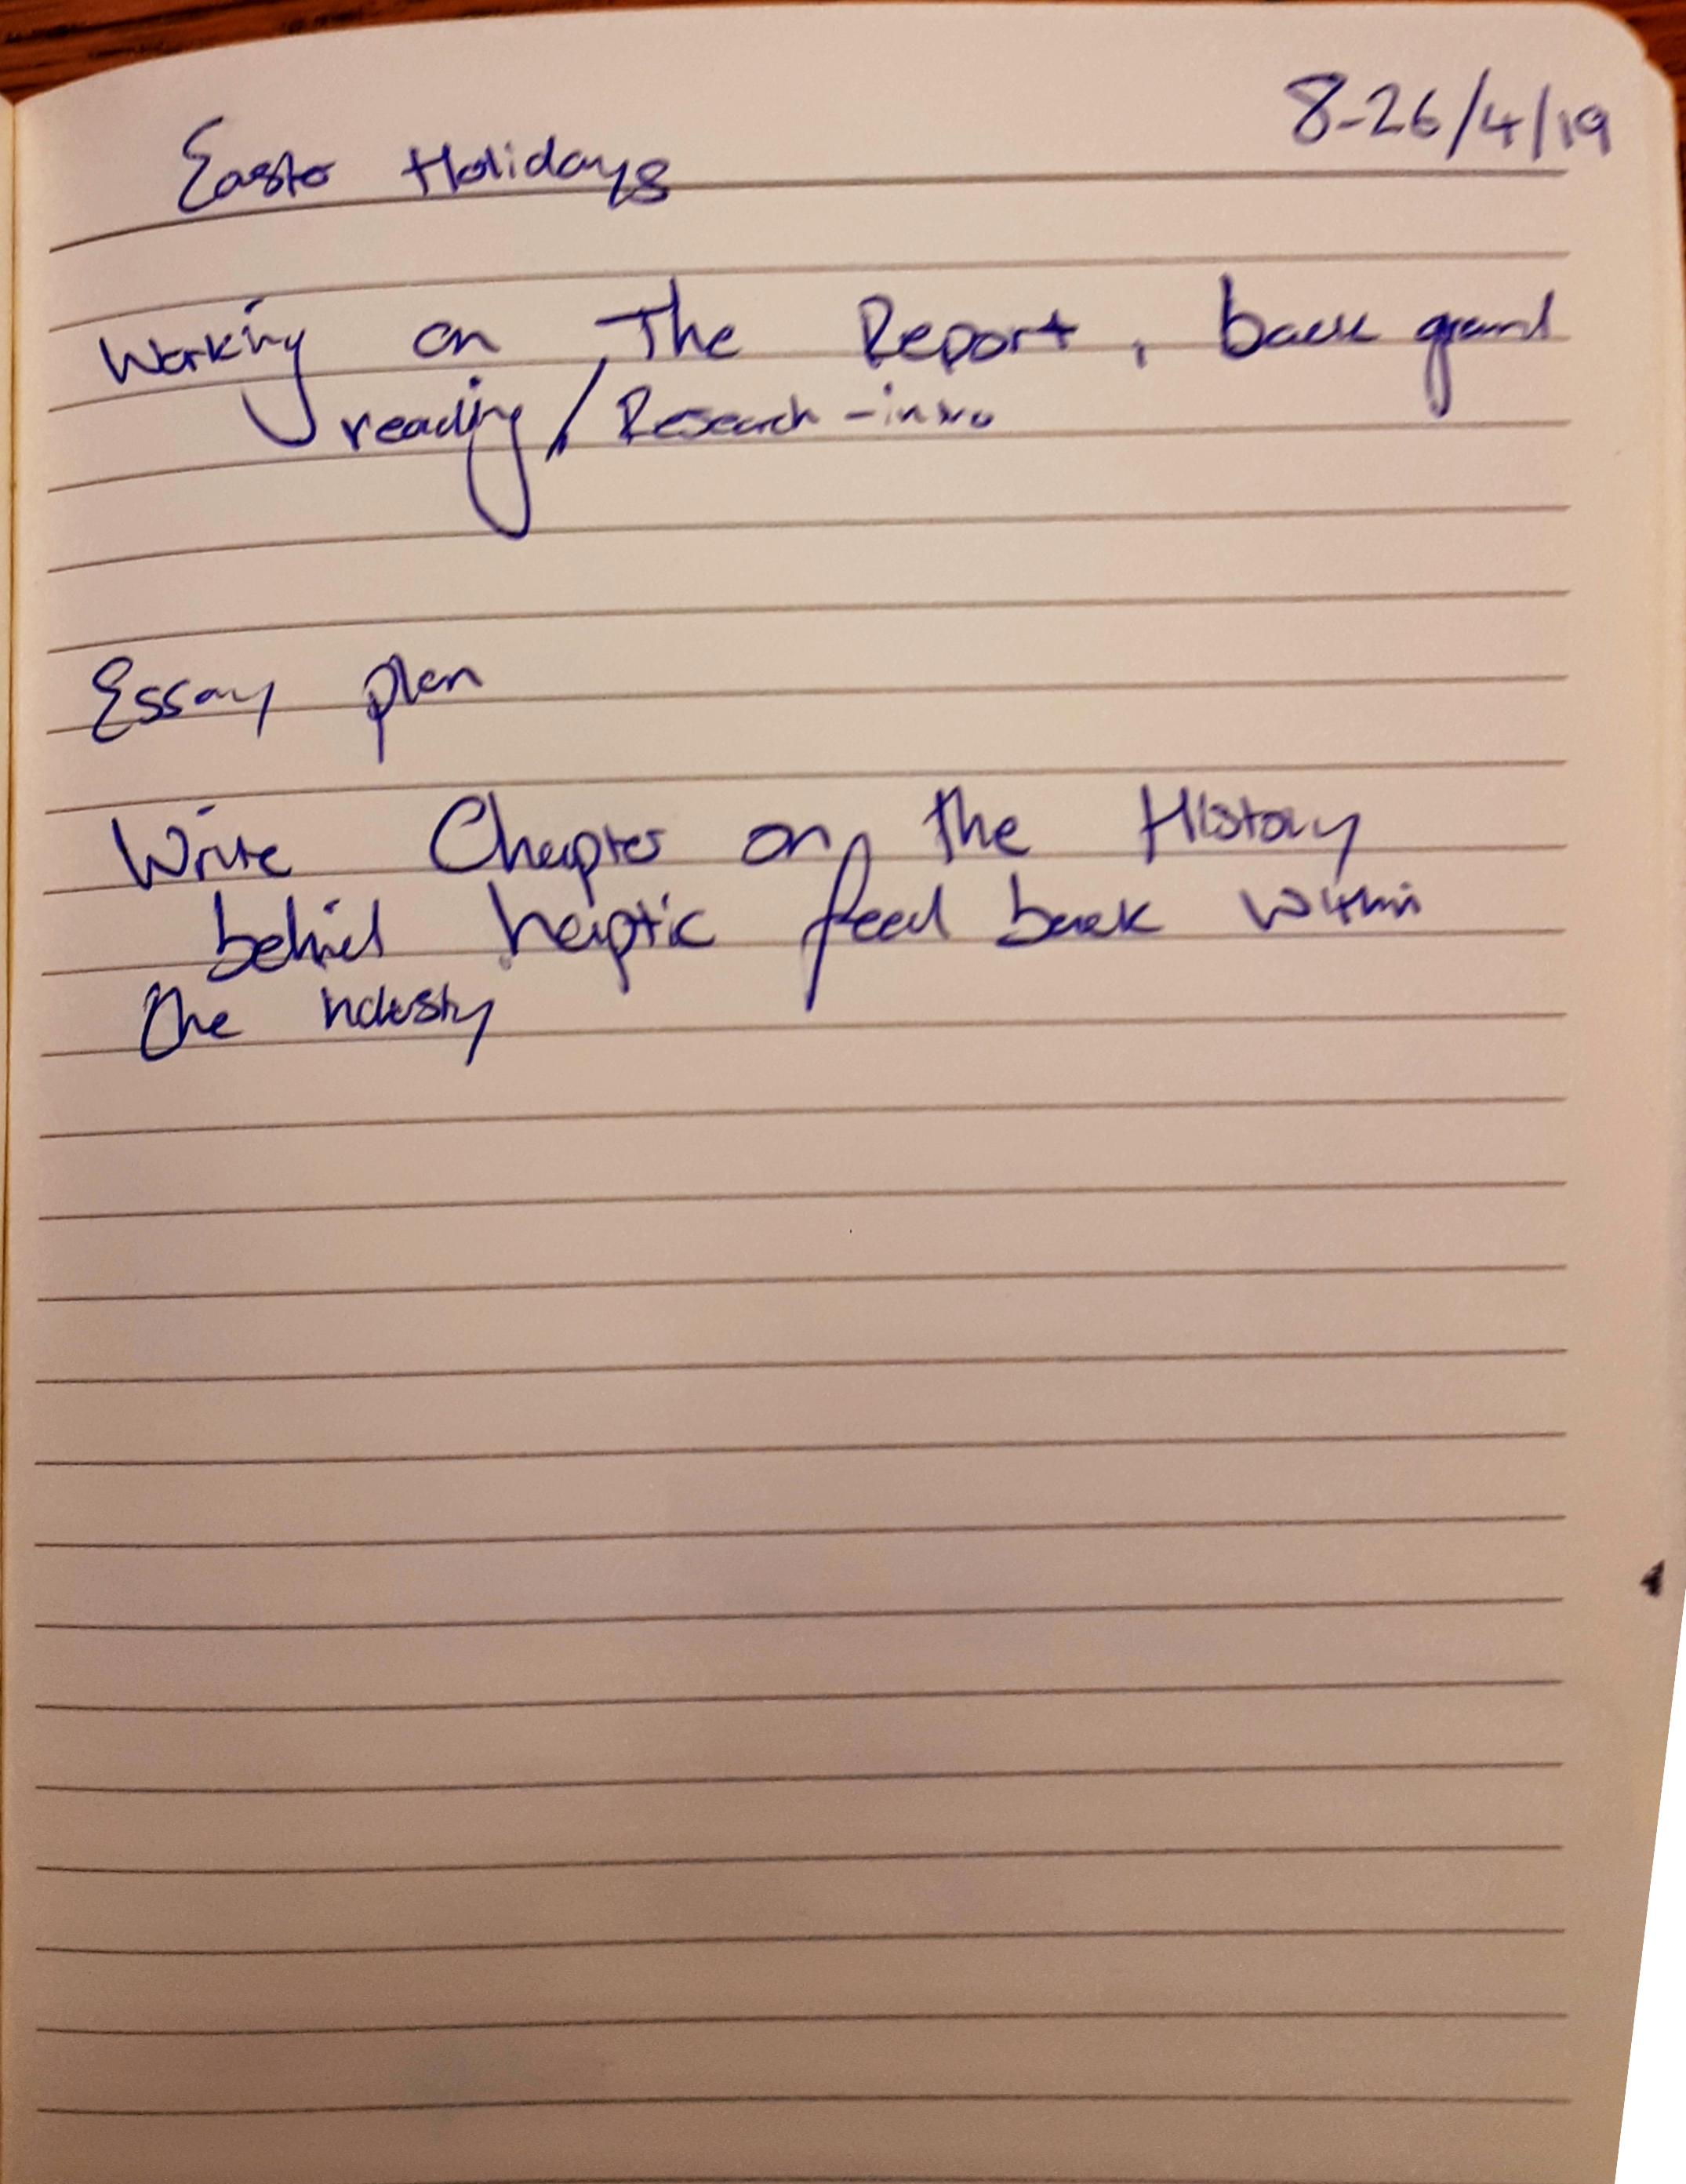 8-26/4/19
Easter Holidays
Working on The Report, back ground
reading / Research - intro
Essay plan
Write Chapter on the History
behind haptic feed back within
the industry